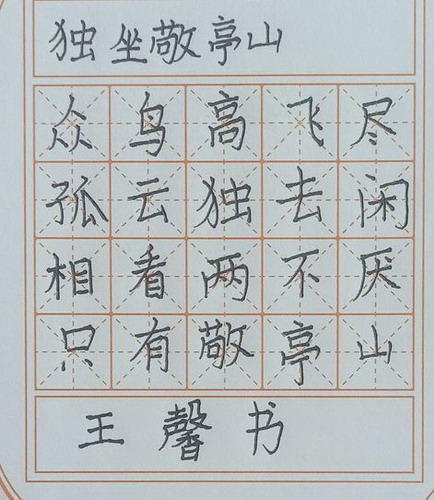 独坐敬亭山
众鸟高飞尽
孤云独去闲
相看两不厌
只有敬亭山
王馨书